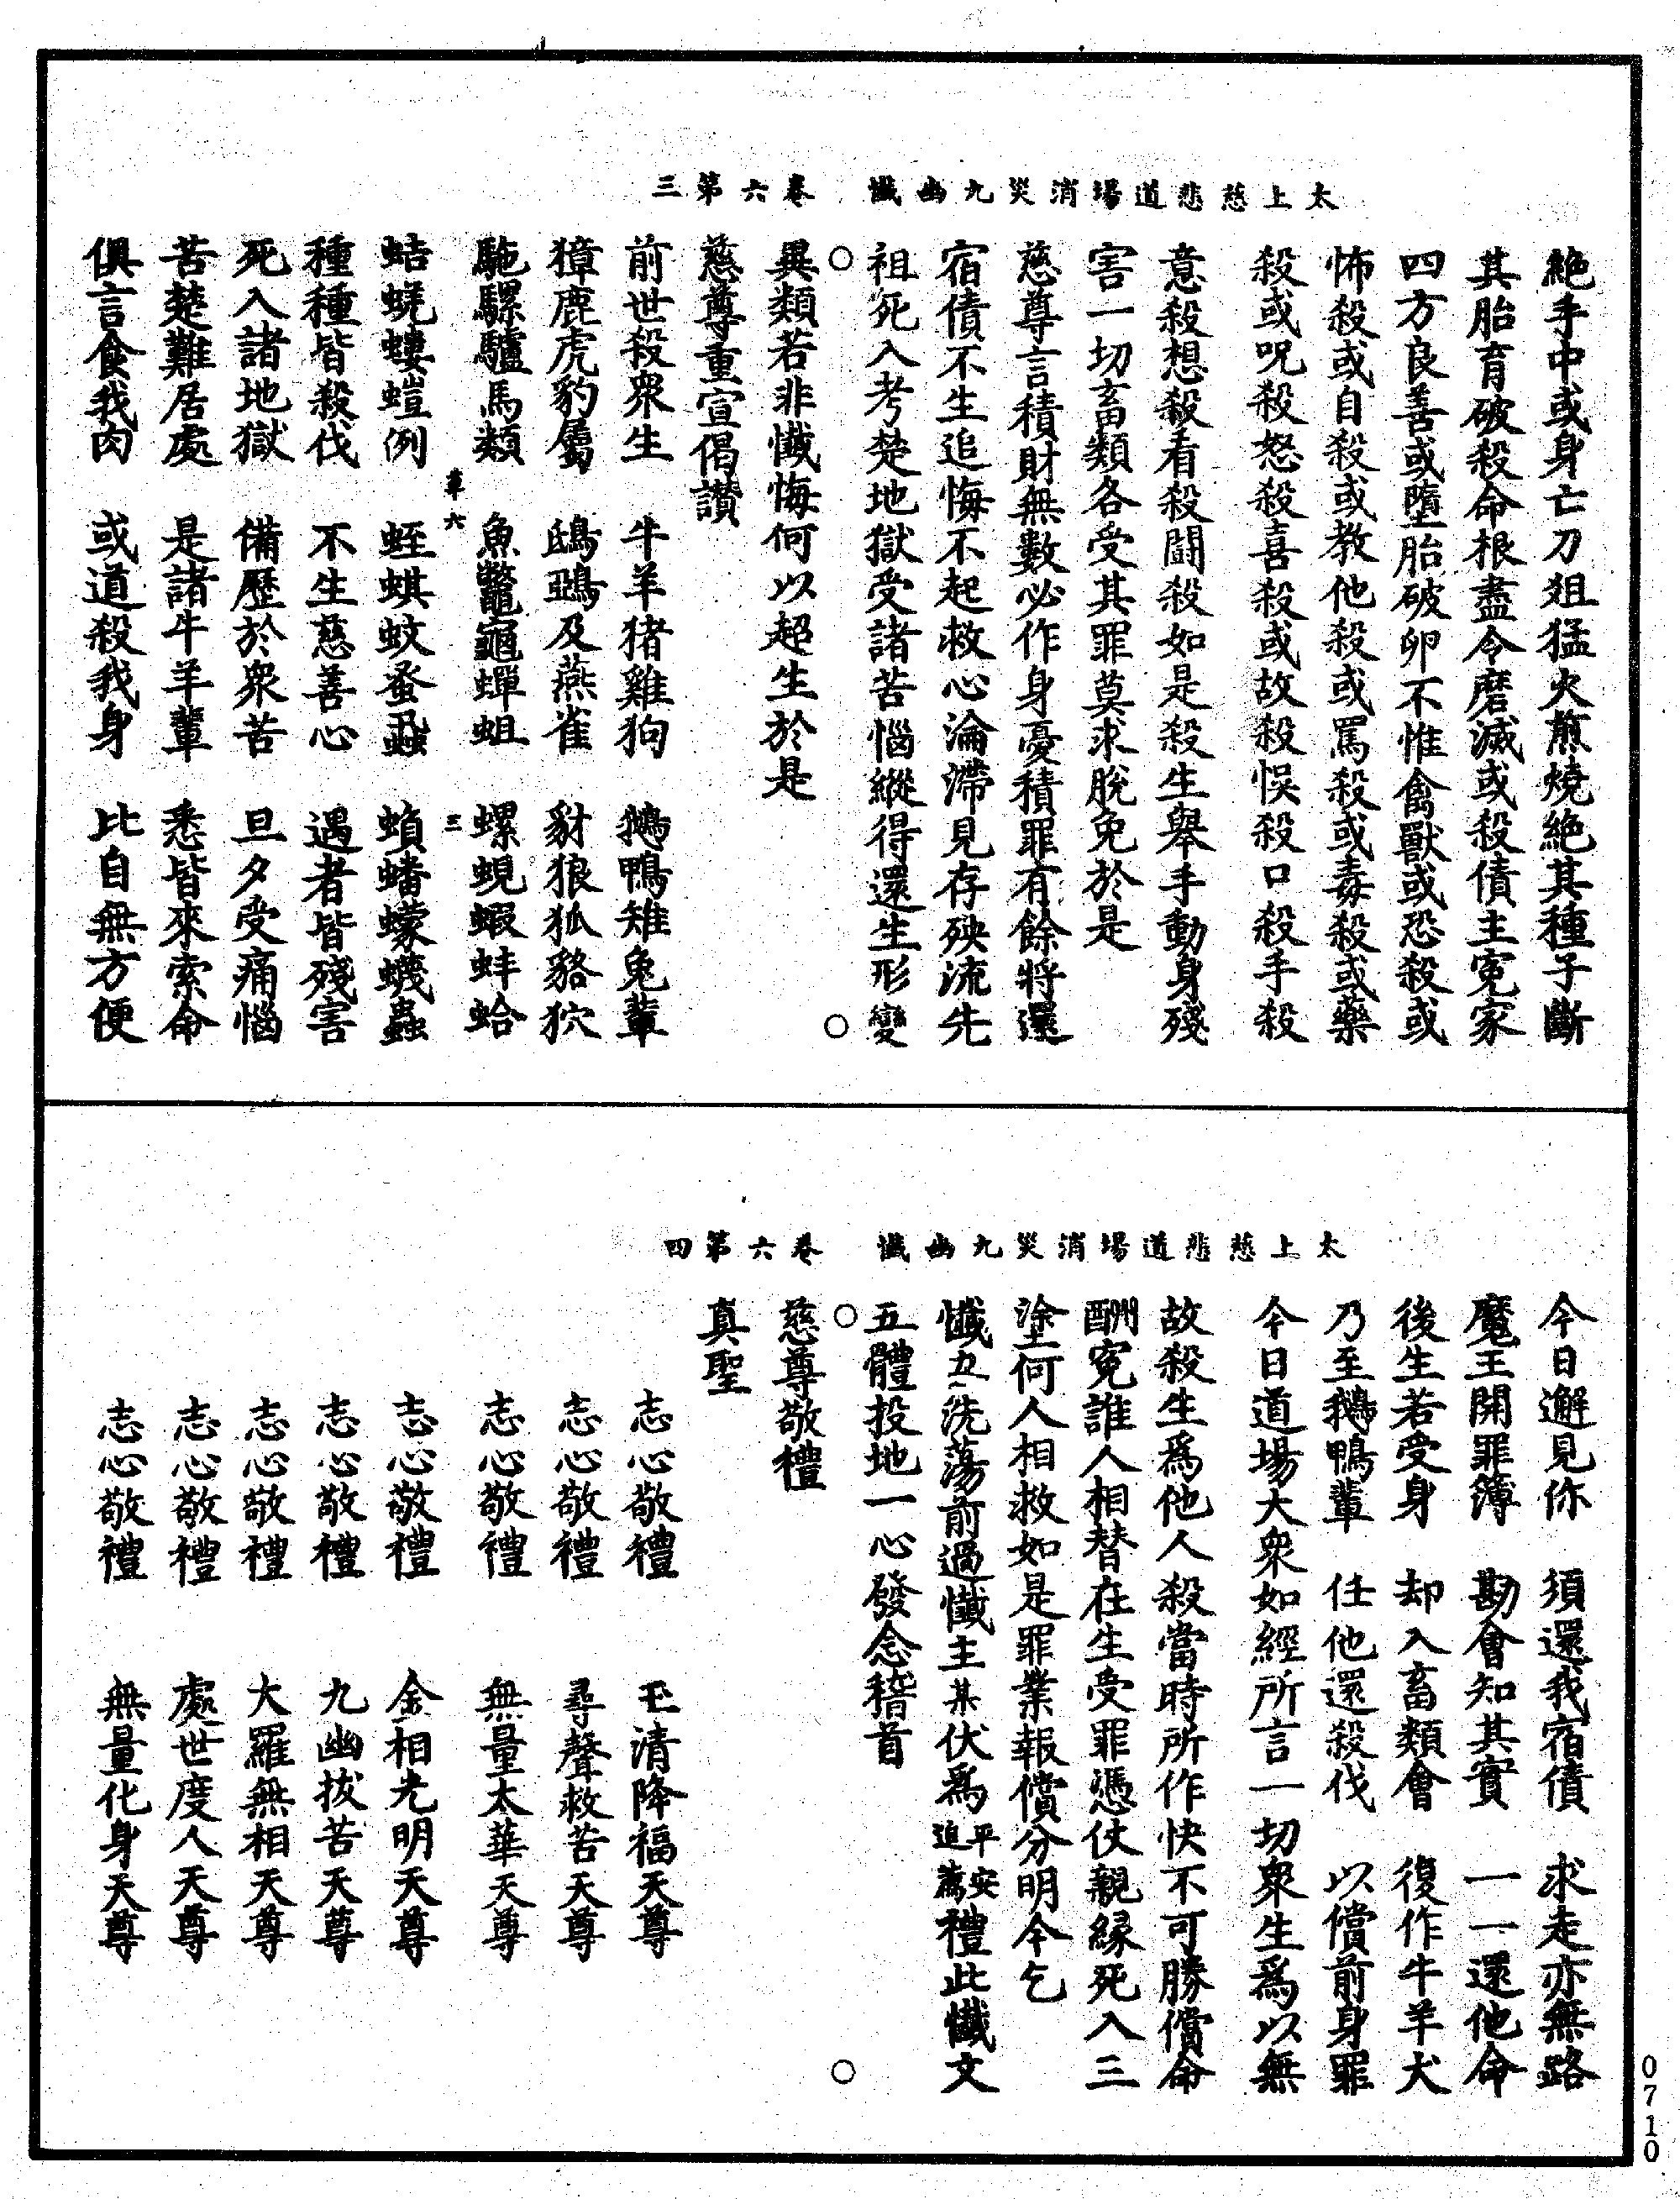 太上慈悲道場消災九幽懺　卷六第三
絶手中或身亡刀俎猛火煎燒絶其種子斷
其胎育破殺命根盡令磨滅或殺債主寃家
四方良善或墮胎破卵不惟禽獸或恐殺或
怖殺或自殺或教他殺或罵殺或毒殺或藥
殺或呪殺怒殺喜殺或故殺悞殺口殺手殺
意殺想殺看殺鬪殺如是殺生舉手動身殘
害一切畜類各受其罪莫求脫免於是
慈尊言積財無數必作身憂積罪有餘將還
宿債不生追悔不起救心淪滯見存殃流先
祖死入考楚地獄受諸苦惱縱得還生形變
○　○
異類若非懺悔何以超生於是
慈尊重宣偈讃
前世殺衆生　牛羊猪雞狗　鵝鴨雉兔輩
獐鹿虎豹屬　鴟鵶及燕雀　豺狼狐貉狖
駞騾驢馬類　魚鼈龜蟬蛆　螺蜆蝦蚌蛤
章六　三
蛣蜣螻螘例　蛭蜞蚊蚤虱　蝜蟠蠓蠛蟲
種種皆殺伐　不生慈善心　遇者皆殘害
死入諸地獄　備歷於衆苦　旦夕受痛惱
苦楚難居處　是諸牛羊輩　悉皆來索命
俱言食我肉　或道殺我身　比自無方便
太上慈悲道場消災九幽懺　卷六第四
今日邂見你　須還我宿債　求走亦無路
魔王開罪簿　勘會知其實　一一還他命
後生若受身　却入畜類會　復作牛羊犬
乃至鵝鴨輩　任他還殺伐　以償前身罪
今日道場大衆如經所言一切衆生爲以無
故殺生爲他人殺當時所作快不可勝償命
酬寃誰人相替在生受罪憑仗親縁死入三
塗何人相救如是罪業報償分明今乞
懺五洗蕩前過懺主某伏爲平安追薦禮此懺文
五體投地一心發念稽首
○　○
慈尊敬禮
真聖
志心敬禮　玉清降福天尊
志心敬禮　尋聲救苦天尊
志心敬禮　無量太華天尊
志心敬禮　金相光明天尊
志心敬禮　九幽拔苦天尊
志心敬禮　大羅無相天尊
志心敬禮　處世度人天尊
志心敬禮　無量化身天尊
0710